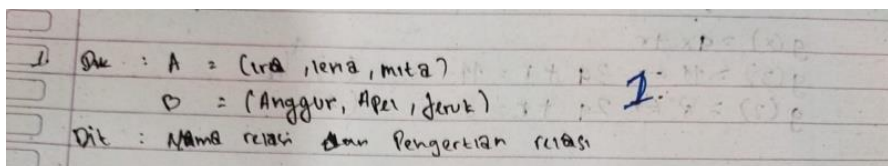 1. Dik : A = (ira, lena, mita)
B = (Anggur, Apel, Jeruk) 1.
Dit : Nama relasi dan Pengertian relasi